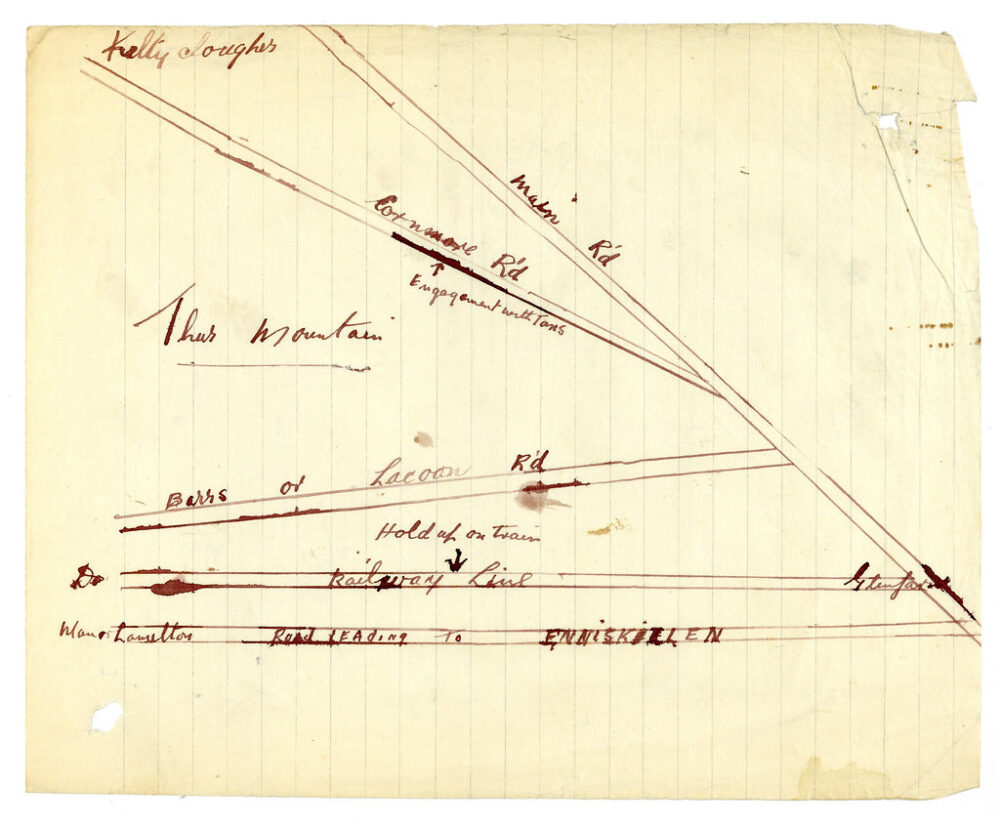 Kiltyclougher
Main Rd
Cornmore Rd
Engagement with Tans
Thur Mountain
Barrs or Lacoon Rd
Hold up on train
Do Railway Line Glenfarn
Manorhamelton Road LEADing To ENNISKILLEN